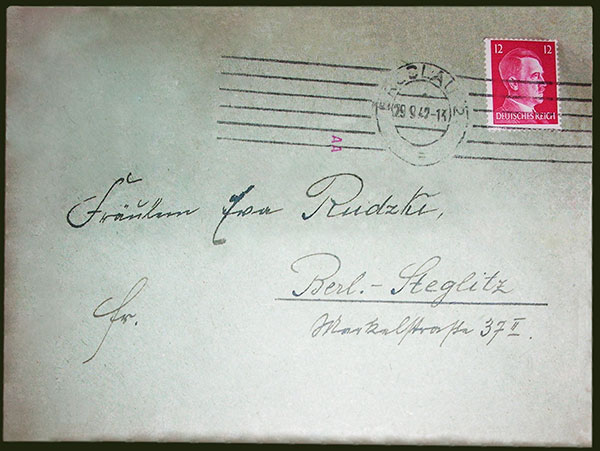 12 12
DEUTSCHES REICH
29.9.42-13
AA
Fräulein Eva Rudzki,
Berl.-Steglitz
fr.
Markelstraße 37 II.